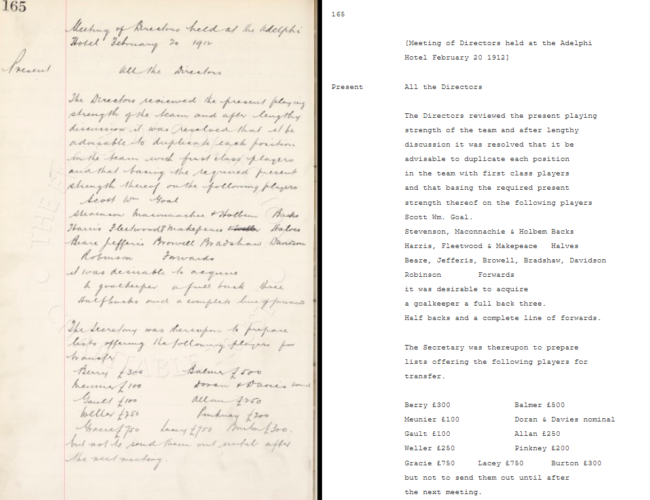 165
Meeting of Directors held at the Adelphi
Hotel February 20 1912
Present All the Directors
The Directors reviewed the present playing
strength of the team and after lengthy
discussion it was resolved that it be
advisable to duplicate each position
in the team with first class players
and that basing the required present
strength thereof on the following players
Scott Wm Goal
Stevenson Maconnachie & Holbem Backs
Harris Fleetwood & Makepeace Halves
Beare Jefferis Browell Bradshaw Davidson
Robinson Forwards
it was desirable to acquire
a goalkeeper a full back three
Half backs and a complete line of forwards
The Secretary was thereupon to prepare
lists offering the following players for
transfer
Berry £300 Balmer £500
Meunier £100 Doran & Davies
Gault £100 Allan £250
Weller £250 Pinkney £200
Gracie £750 Lacey £750 Burton £300.
but not to send them out until after
the next meeting.
165
[Meeting of Directors held at the Adelphi
Hotel February 20 1912]
Present All the Directors
The Directors reviewed the present playing
strength of the team and after lengthy
discussion it was resolved that it be
advisable to duplicate each position
in the team with first class players
and that basing the required present
strength thereof on the following players
Scott Wm. Goal.
Stevenson, Maconnachie & Holbem Backs
Harris, Fleetwood & Makepeace Halves
Beare, Jefferis, Browell, Bradshaw, Davidson
Robinson Forwards
it was desirable to acquire
a goalkeeper a full back three.
Half backs and a complete line of forwards.
The Secretary was thereupon to prepare
lists offering the following players for
transfer.
Berry £300 Balmer £500
Meunier £100 Doran & Davies nominal
Gault £100 Allan £250
Weller £250 Pinkney £200
Gracie £750 Lacey £750 Burton £300
but not to send them out until after
the next meeting.